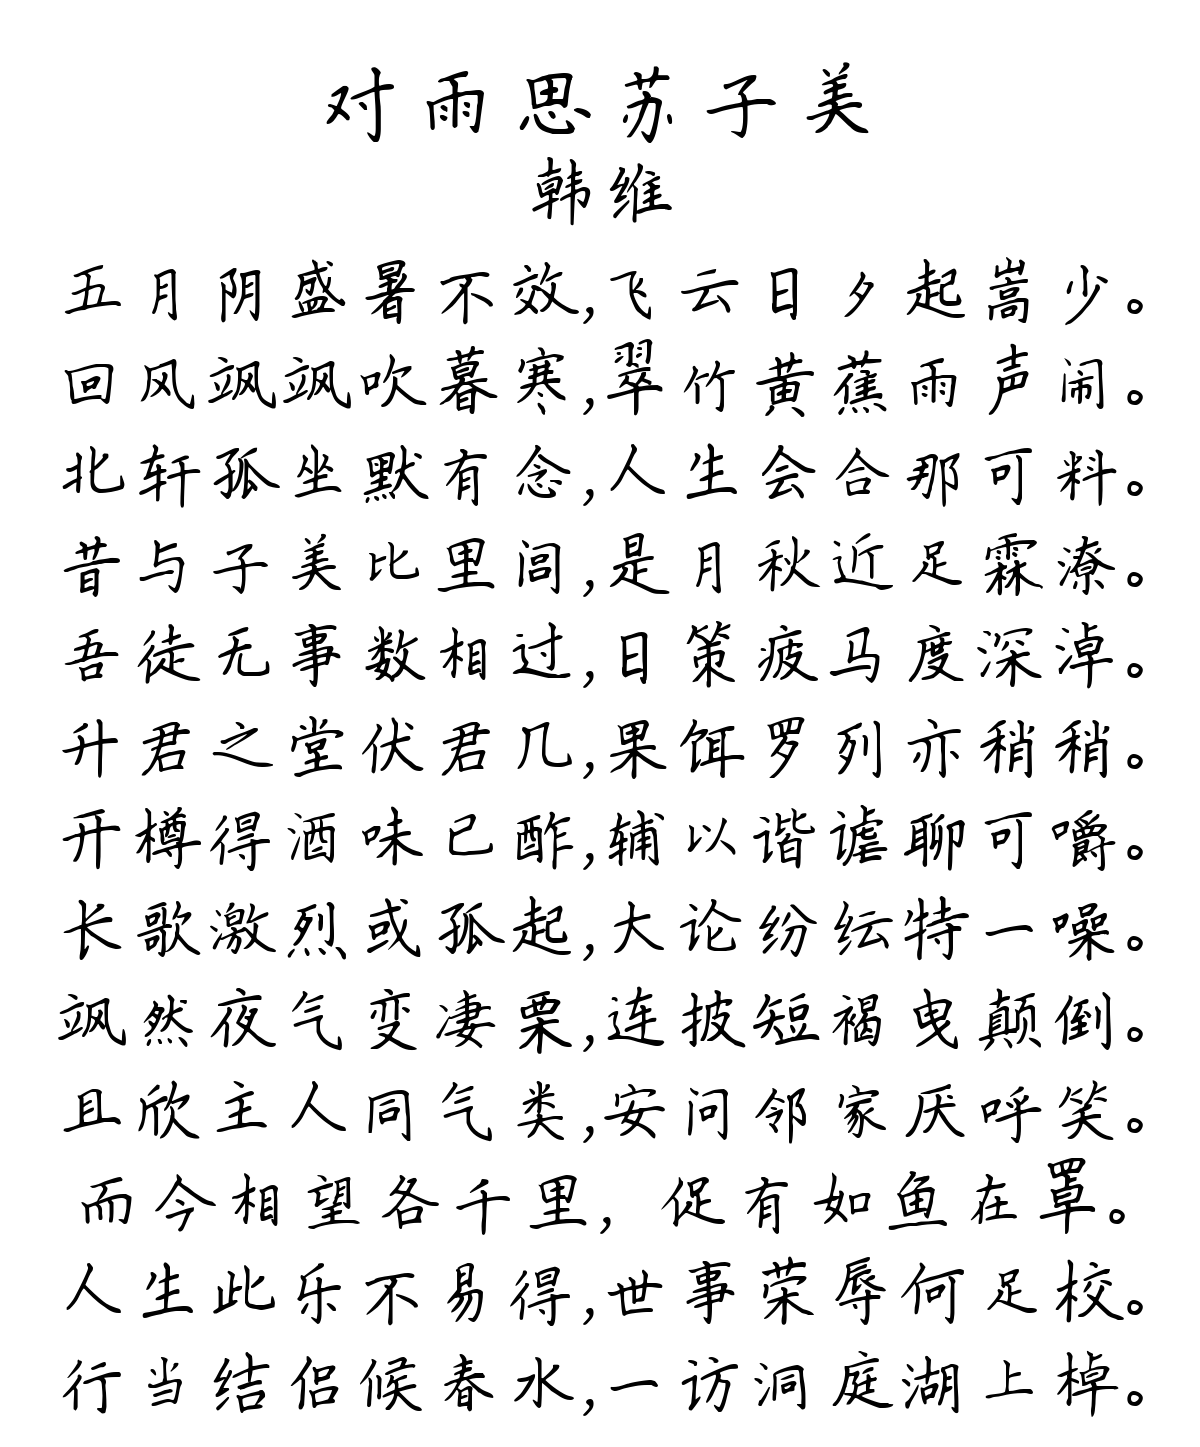 对雨思苏子美
韩维
五月阴盛暑不效,飞云日夕起嵩少。
回风飒飒吹暮寒,翠竹黄蕉雨声闹。
北轩孤坐默有念,人生会合那可料。
昔与子美比里闾,是月秋近足霖潦。
吾徒无事数相过,日策疲马度深淖。
升君之堂伏君几,果饵罗列亦稍稍。
开樽得酒味已酢,辅以谐谑聊可嚼。
长歌激烈或孤起,大论纷纭特一噪。
飒然夜气变凄栗,连披短褐曳颠倒。
且欣主人同气类,安问邻家厌呼笑。
而今相望各千里，促有如鱼在罩。
人生此乐不易得,世事荣辱何足校。
行当结侣候春水,一访洞庭湖上棹。